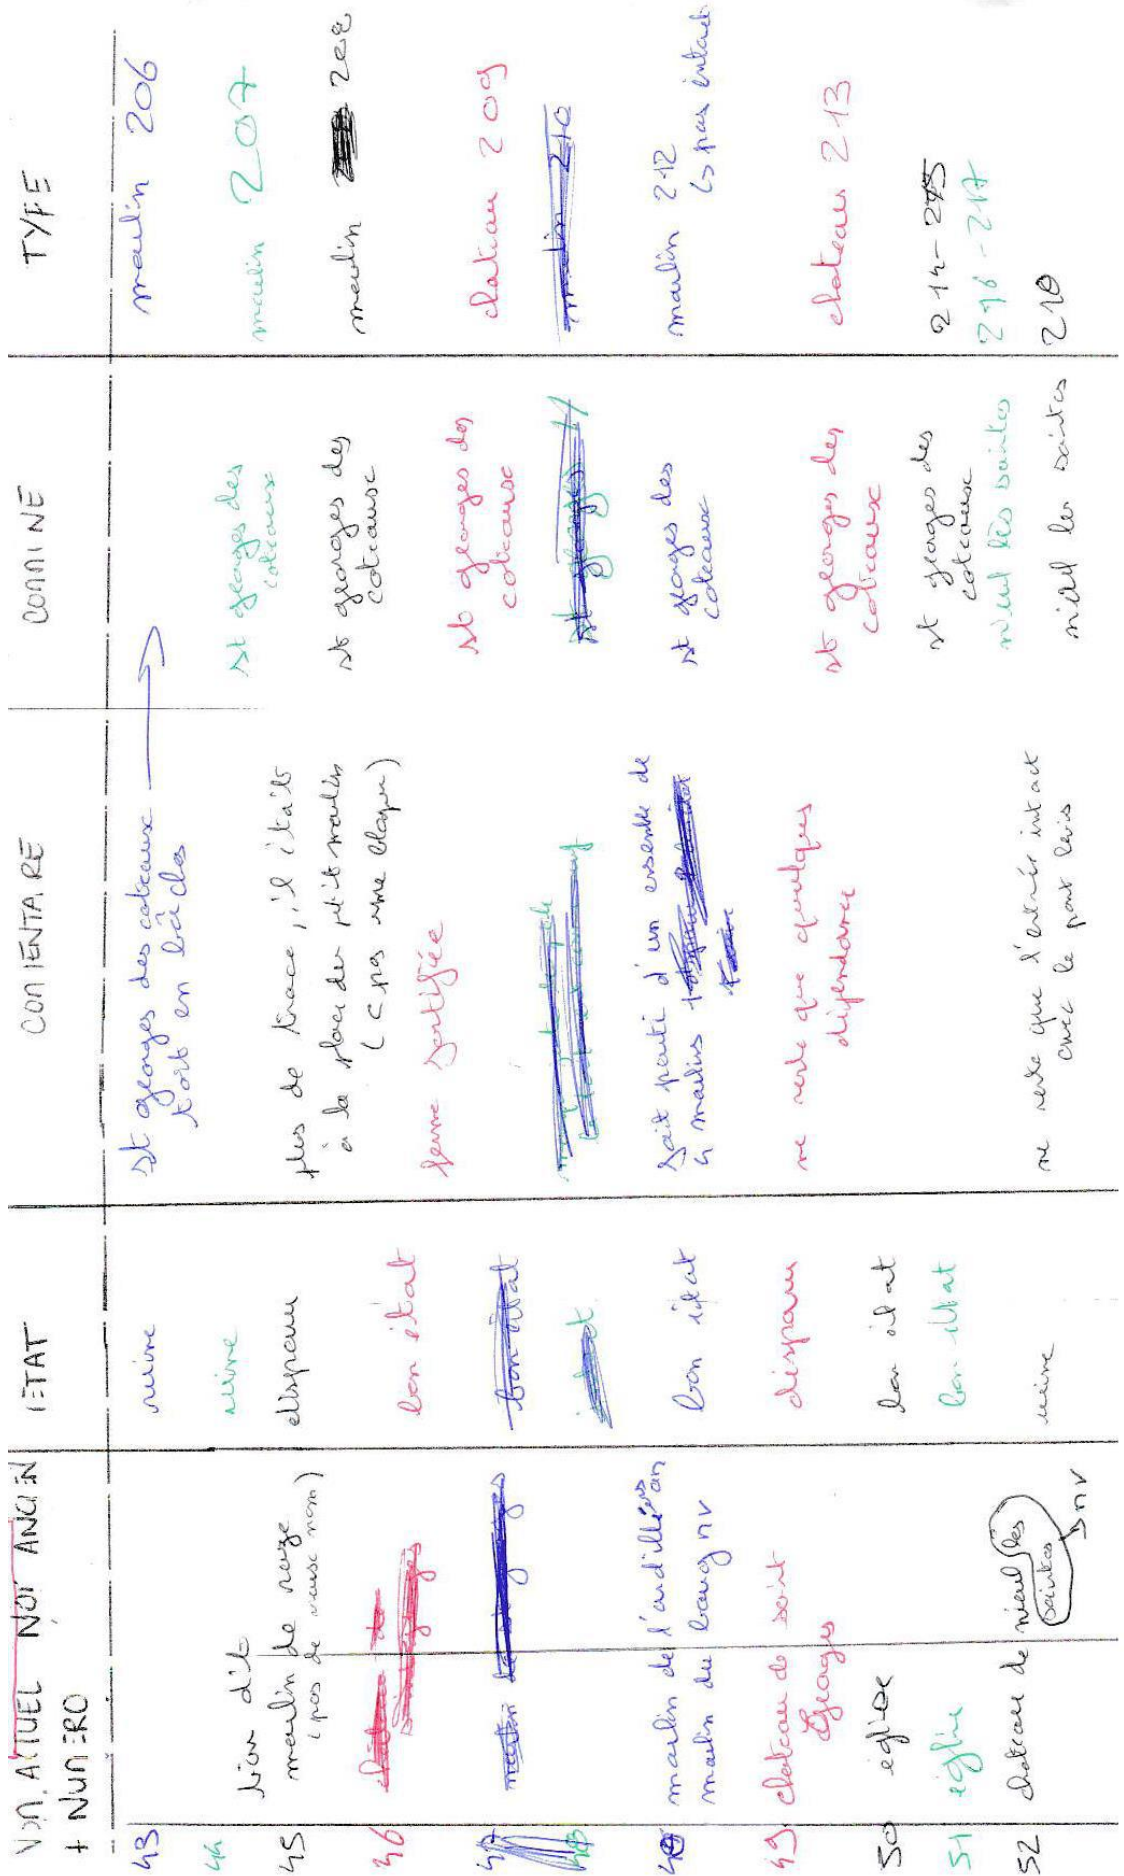 NOM ACTUEL NOM ANCIEN
+ NUMERO
ETAT
COMMENTAIRE
COMMUNE
TYPE
43
ruine
st georges des coteaux
tout en bâ clos
moulin 206
44
ruine
st georges des
coteaux
moulin 207
45
lieu dit
moulin de
(pas de nom)
disparu
plus de trace, il était
à la place du ptit moulin
(c pas une blague)
st georges des
coteaux
moulin 208
46
bon état
ferme fortifiée
st georges des
coteaux
chateau 209
bon état
st georges
moulin 210
moulin de l'ardillières an
moulin du bourg nv
bon état
fait parti d'un ensemble de
4 moulins
st georges des
coteaux
moulin 212
↳ pas intact
49
chateau de saint
Georges
disparu
ne reste que quelques
dependance
st georges des
coteaux
chateau 213
50
eglise
bon état
st georges des
coteaux
214-215
51
eglise
bon état
nieul lès saintes
216-217
52
chateau de nieul les
saintes
nv
ruine
ne reste que l'entrée intact
avec le pont levis
nieul les saintes
218